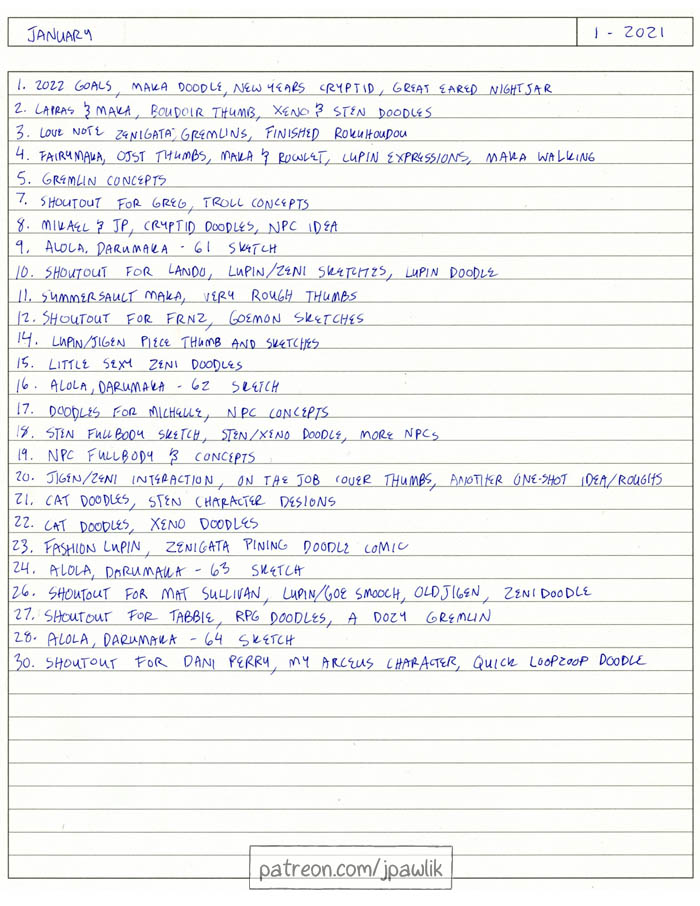 JANUARY
1 - 2021
1. 2022 GOALS, MAKA DOODLE, NEW YEARS CRYPTID, GREAT EARED NIGHTJAR
2. LAPRAS & MAKA, BOUDOIR THUMB, XENO & STEN DOODLES
3. LOVE NOTE ZENIGATA, GREMLINS, FINISHED ROKUHOUDOU
4. FAIRYMAKA, OJST THUMBS, MAKA & ROWLET, LUPIN EXPRESSIONS, MAKA WALKING
5. GREMLIN CONCEPTS
7. SHOUTOUT FOR GREG, TROLL CONCEPTS
8. MIKAEL & JP, CRYPTID DOODLES, NPC IDEA
9. ALOLA, DARUMAKA - 61 SKETCH
10. SHOUTOUT FOR LANDO, LUPIN/ZENI SKETCHES, LUPIN DOODLE
11. SUMMERSAULT MAKA, VERY ROUGH THUMBS
12. SHOUTOUT FOR FRNZ, GOEMON SKETCHES
14. LUPIN/JIGEN PIECE THUMB AND SKETCHES
15. LITTLE SEXY ZENI DOODLES
16. ALOLA, DARUMAKA - 62 SKETCH
17. DOODLES FOR MICHELLE, NPC CONCEPTS
18. STEN FULLBODY SKETCH, STEN/XENO DOODLE, MORE NPCs
19. NPC FULLBODY & CONCEPTS
20. JIGEN/ZENI INTERACTION, ON THE JOB COVER THUMBS, ANOTHER ONE-SHOT IDEA/ROUGHS
21. CAT DOODLES, STEN CHARACTER DESIGNS
22. CAT DOODLES, XENO DOODLES
23. FASHION LUPIN, ZENIGATA PINING DOODLE COMIC
24. ALOLA, DARUMAKA - 63 SKETCH
26. SHOUTOUT FOR MAT SULLIVAN, LUPIN/GOE SMOOCH, OLD JIGEN, ZENI DOODLE
27. SHOUTOUT FOR TABBIE, RPG DOODLES, A DOZY GREMLIN
28. ALOLA, DARUMAKA - 64 SKETCH
30. SHOUTOUT FOR DANI PERRY, MY ARCEUS CHARACTER, QUICK LOOPZOOP DOODLE
patreon.com/jpawlik